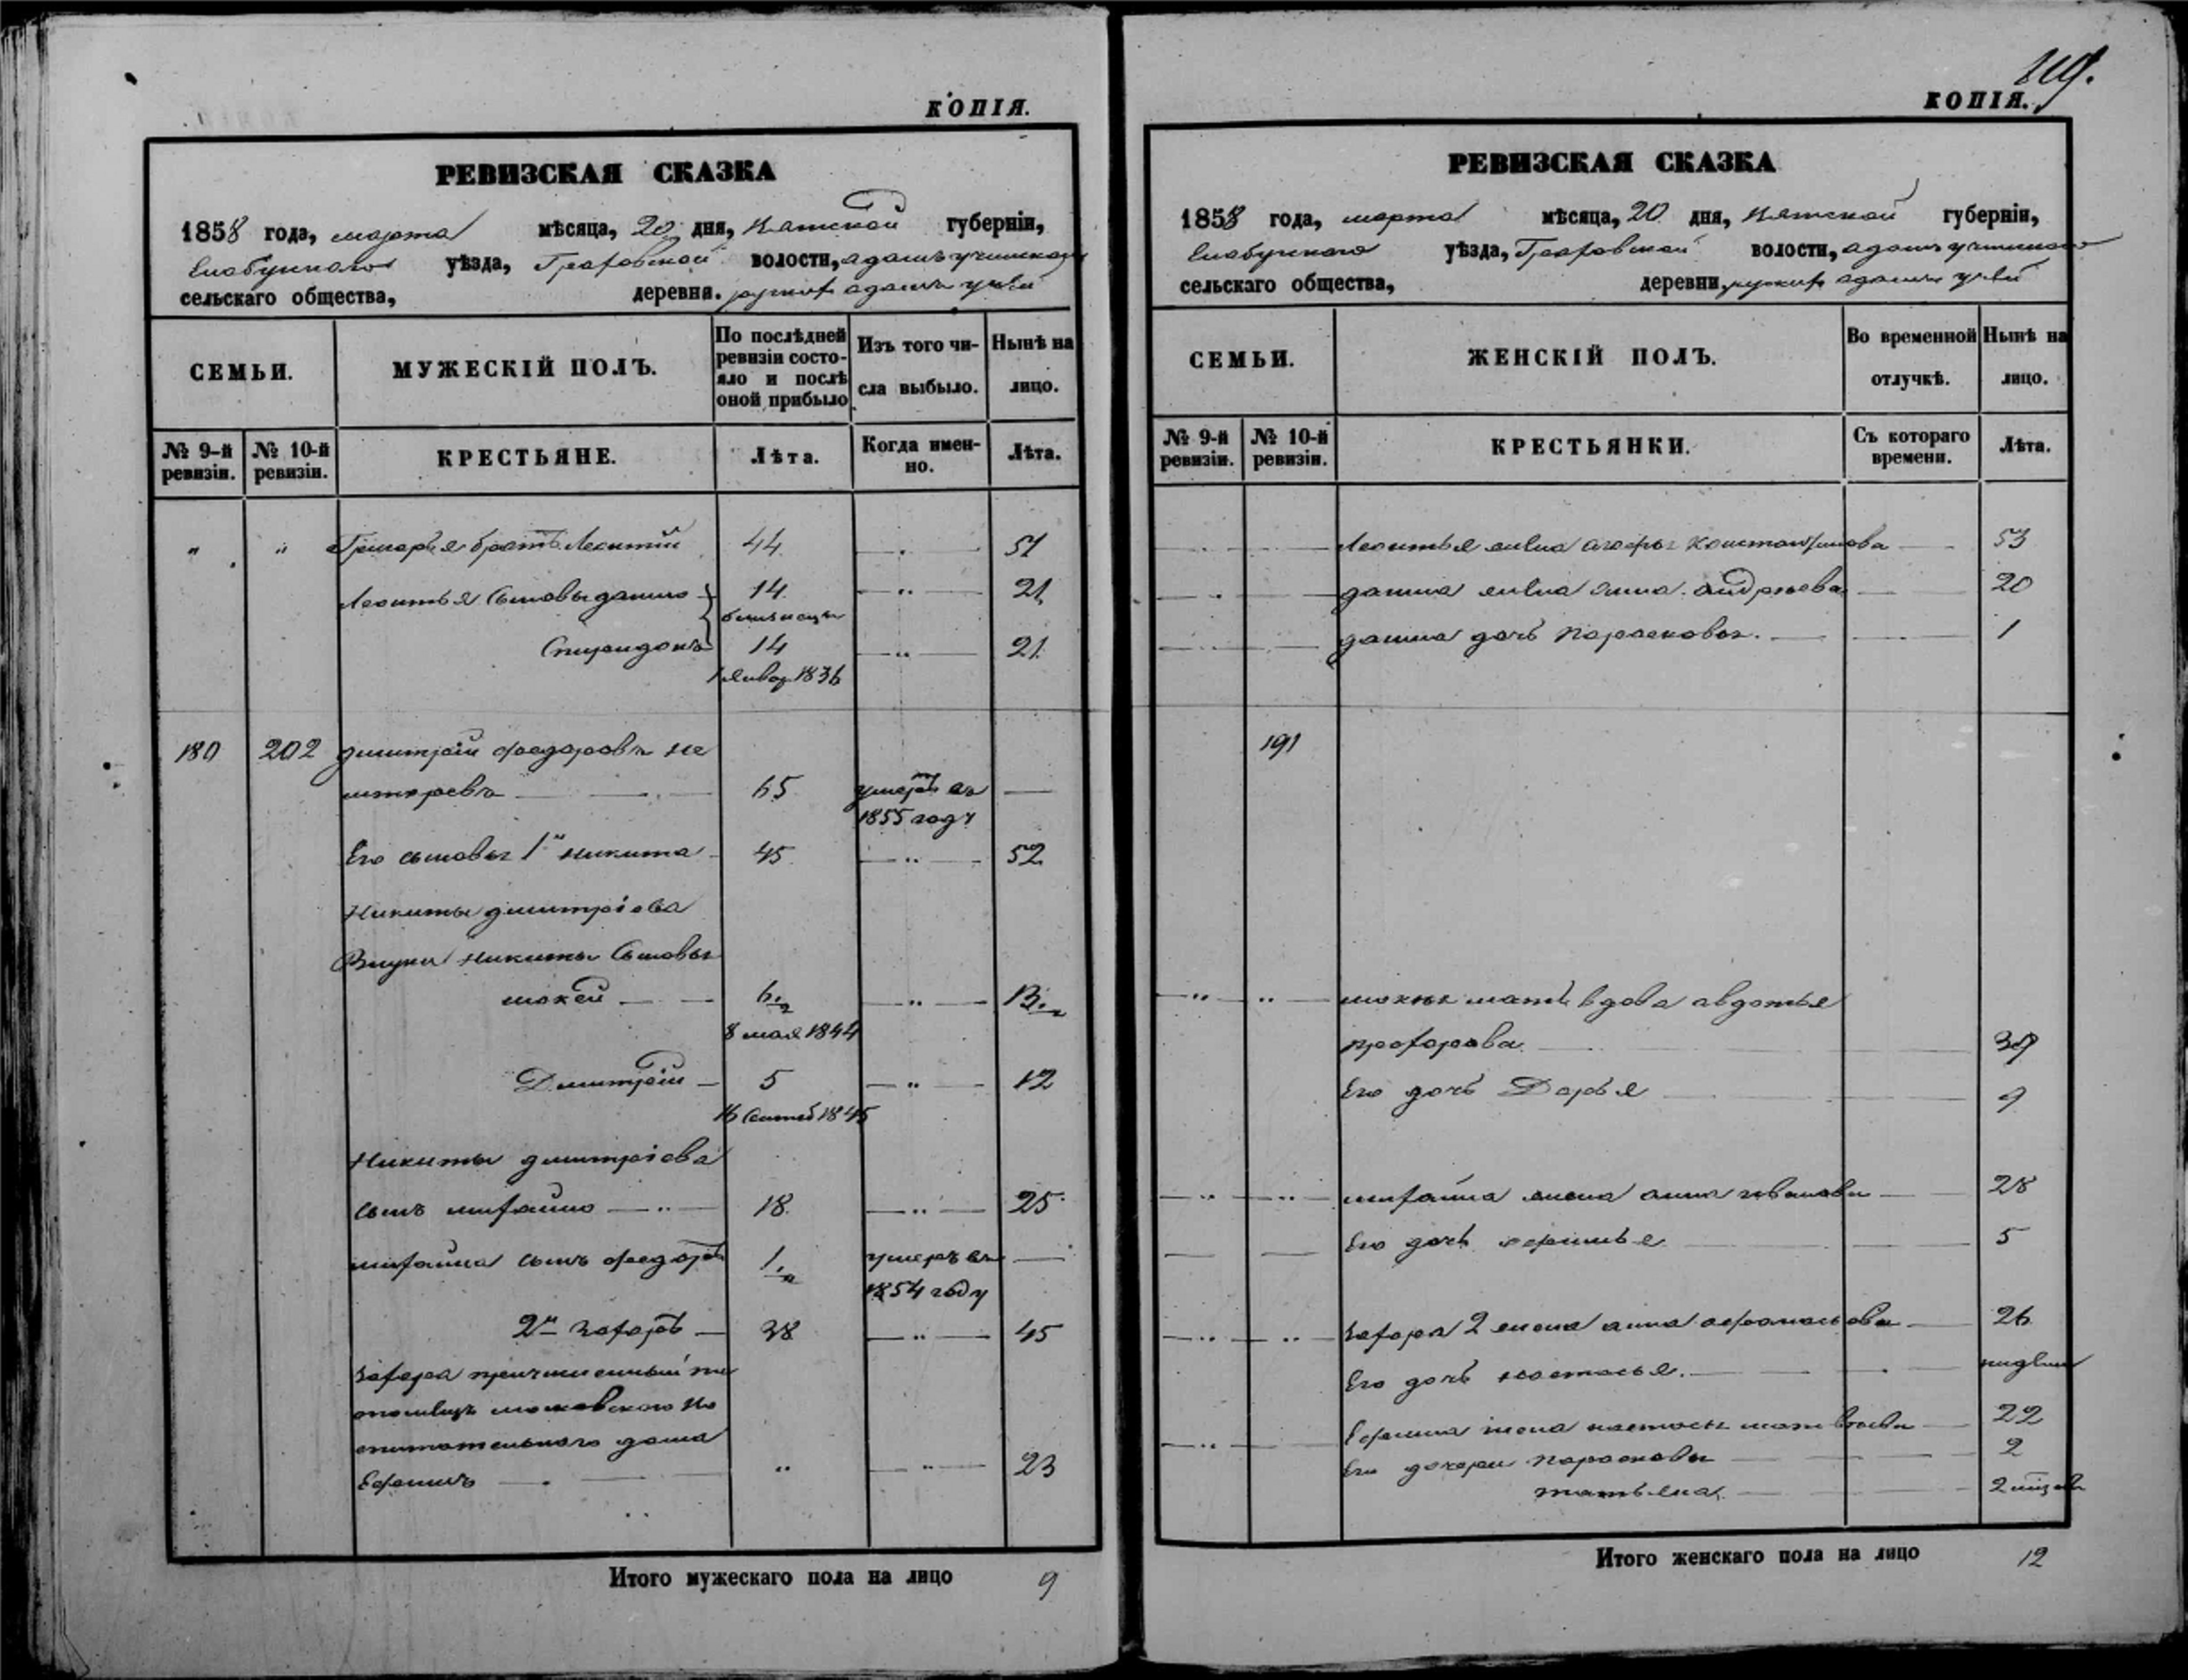 КОПІЯ.
РЕВИЗСКАЯ СКАЗКА
1858 года, марта мѣсяца, 20 дня, Вятской губерніи,
Елабужского уѣзда, Граховской волости,
сельскаго общества, деревни.
СЕМЬИ.
МУЖЕСКІЙ ПОЛЪ.
По послѣдней
ревизіи состо-
яло и послѣ
оной прибыло
Изъ того чи-
сла выбыло.
Нынѣ на
лицо.
№ 9-й
ревизіи.
№ 10-й
ревизіи.
КРЕСТЬЯНЕ.
Лѣта.
Когда имен-
но.
Лѣта.
" " Григорья братъ Леонтий 44 51
Леонтья Сыновья данило 14 21
близнецы
Спиридонъ 14 21
1 январ 1836
180 202 дмитрiй федоровъ не
65 умеръ въ
1855 году
Его сыновья 1й никита 45 52
Никиты дмитріева
Внуки Никиты Сыновья
мокей 6 13
8 мая 1844
Дмитрій 5 12
16 Сентяб 1845
Никиты дмитріева
сынъ михайло 18 25
михайла сынъ федоръ 1 умеръ въ
1854 году
2й захаръ 38 45
захара причисленный пи
томецъ московского во
спитательнаго дома
Ефимъ 23
Итого мужескаго пола на лицо 9
КОПІЯ.
РЕВИЗСКАЯ СКАЗКА
1858 года, марта мѣсяца, 20 дня, Вятской губерніи,
Елабужского уѣзда, Граховской волости,
сельскаго общества, деревни
СЕМЬИ.
ЖЕНСКІЙ ПОЛЪ.
Во временной
отлучкѣ.
Нынѣ на
лицо.
№ 9-й
ревизіи.
№ 10-й
ревизіи.
КРЕСТЬЯНКИ.
Съ котораго
времени.
Лѣта.
Леонтья жена агафья Константинова 53
данила жена Анна андреева 20
данила дочь парасковья. 1
191
мокея мать вдова авдотья
прохорова 39
Его дочь Дарья 9
михайла жена анна иванова 28
Его дочь 5
захара 2 жена анна афонасьева 26
Его дочь настасья.
Ефима жена настасья матвеева 22
Его дочери парасковья 2
татьяна.
Итого женскаго пола на лицо 12